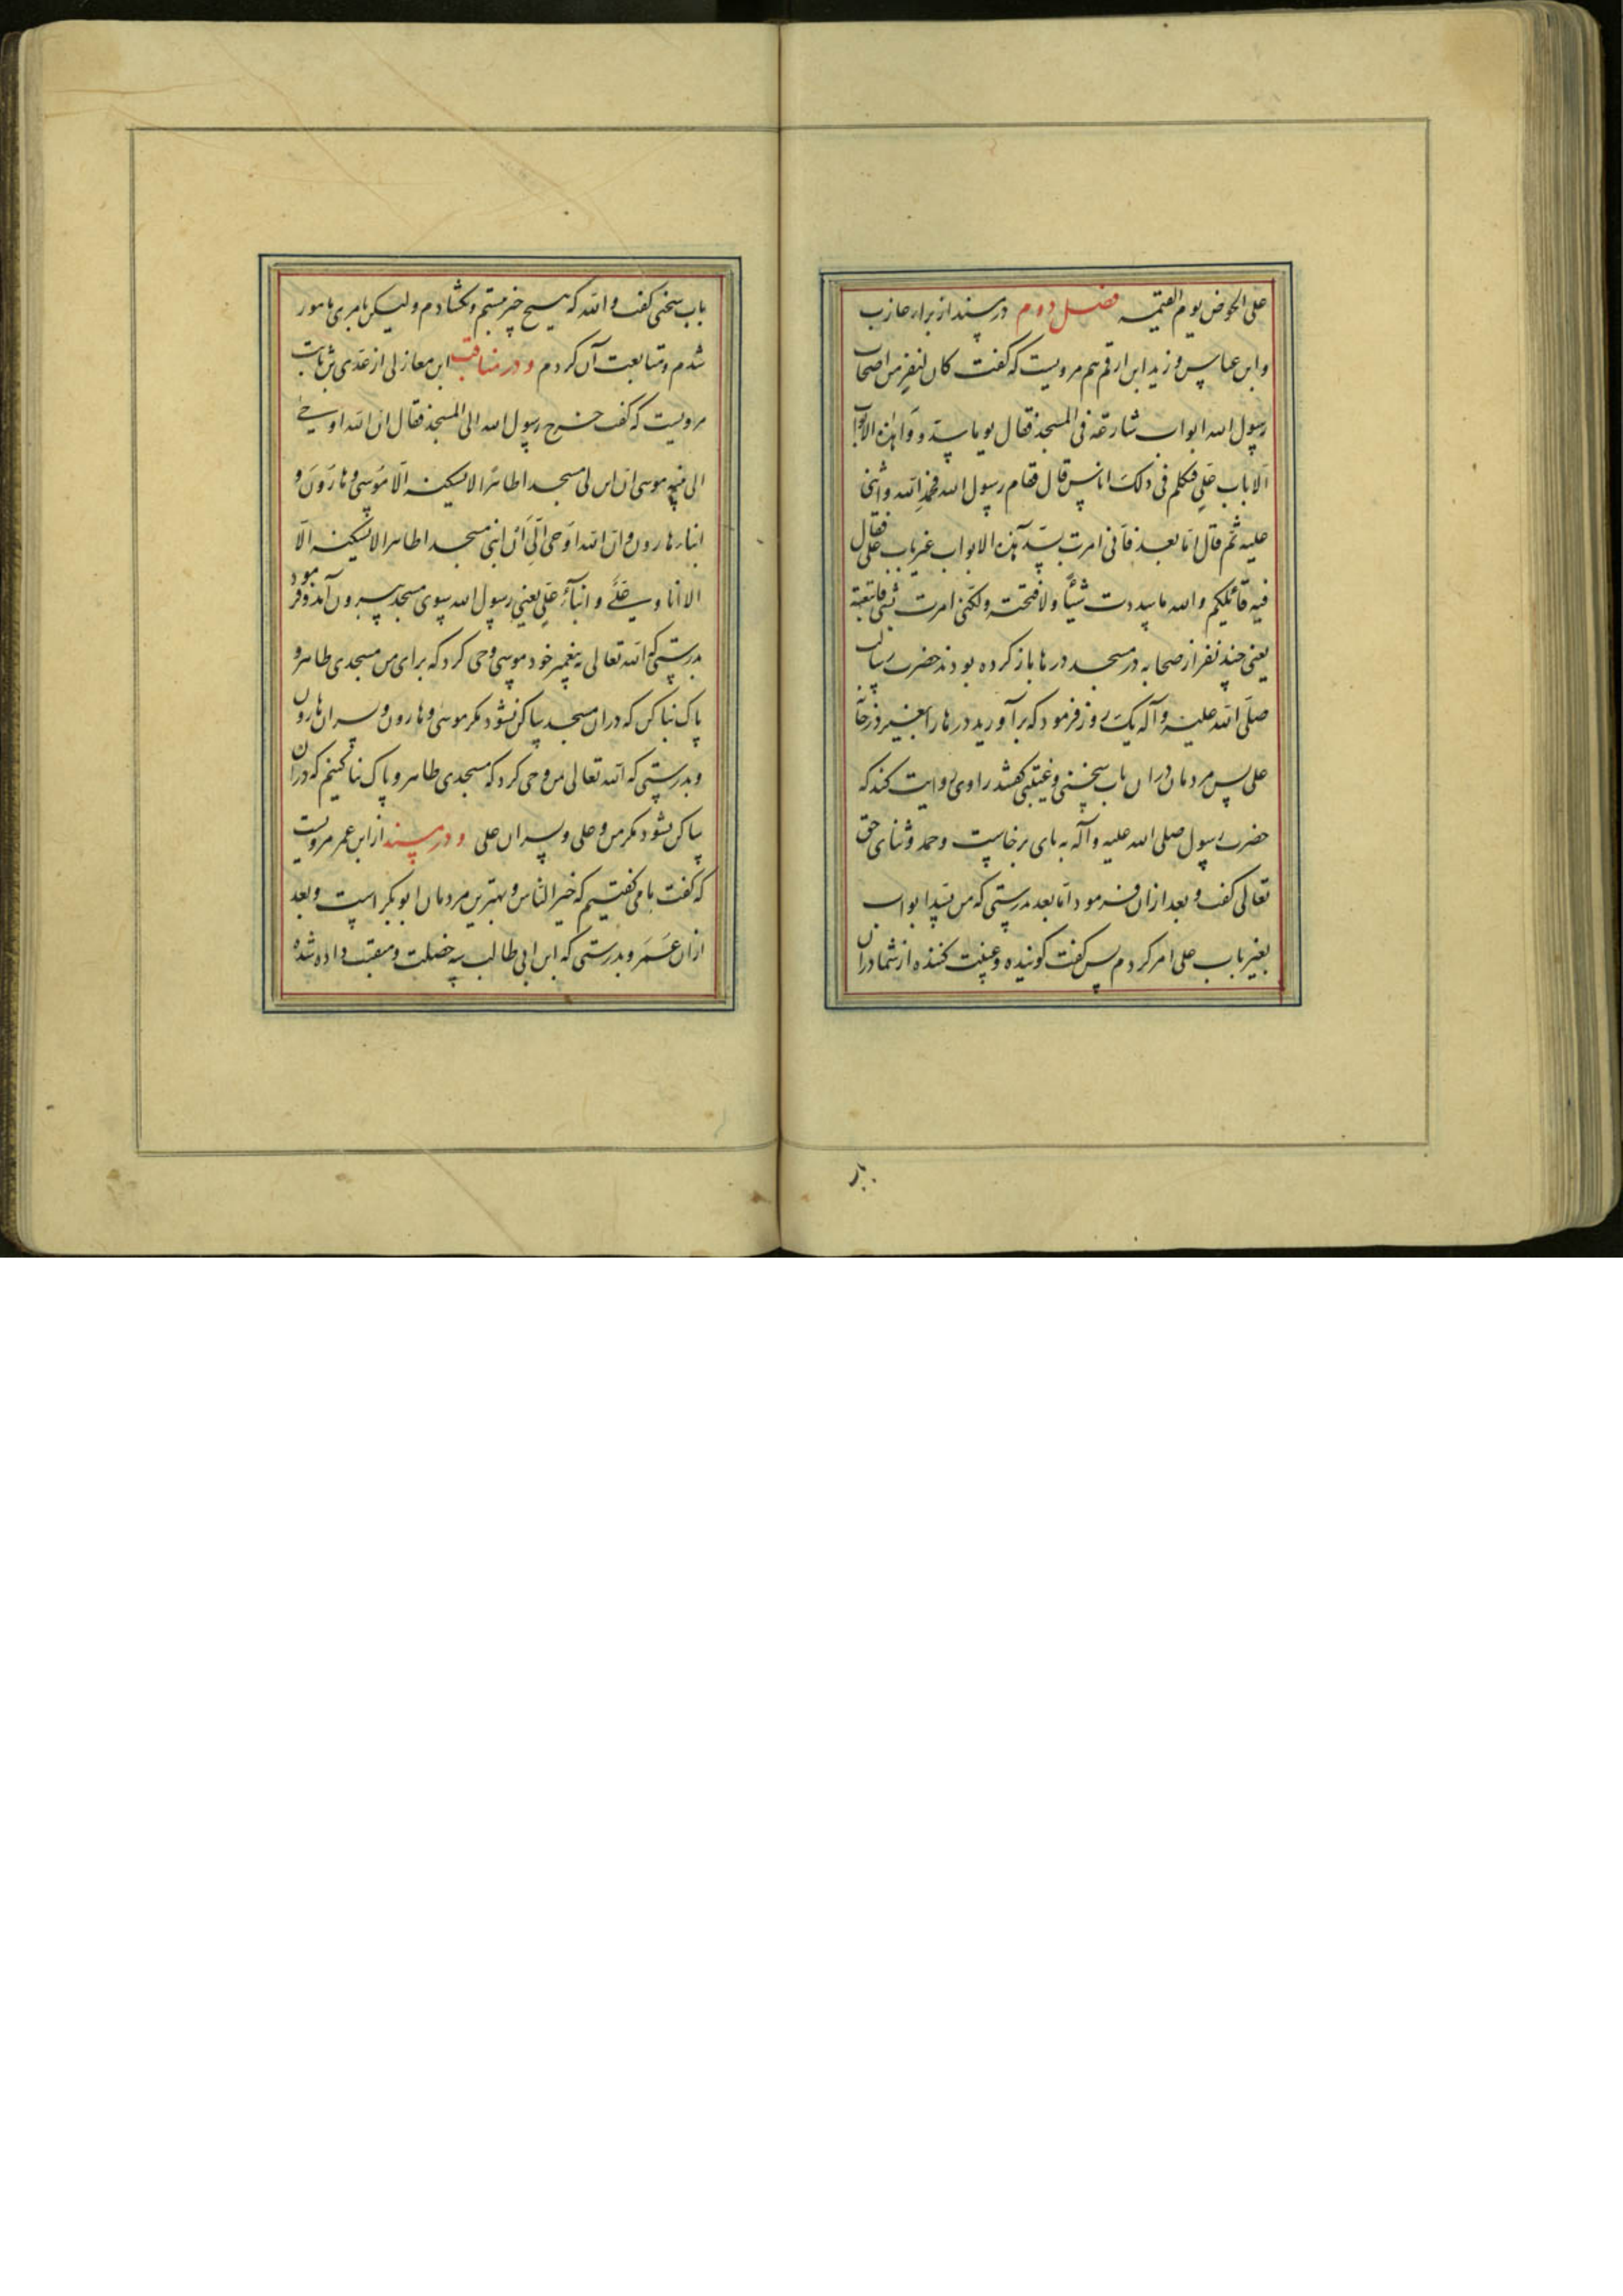 علی الحوض یوم القیمه فصل دوم در مسند از براء عازب
و ابن عباس و زید ابن ارقم هم مرویست که گفت کان لنفر من اصحاب
رسول الله ابواب شارعة فی المسجد فقال یوما سدوا هذه الابواب
الا باب علی فتکلم فی ذلک اناس قال فقام رسول الله فحمد الله و اثنی
علیه ثم قال اما بعد فانی امرت بسد هذه الابواب غیر باب علی فقال
فیه قائلکم و الله ما سددت شیئا و لا فتحته و لکنی امرت بشی فاتبعته
یعنی چند نفر از صحابه در مسجد درها باز کرده بودند حضرت رسالت
صلی الله علیه و آله یک روز فرمود که برآورید درها را بغیر در خانه
علی پس مردمان در آن باب سخنی و غیبتی گفتند راوی روایت کند که
حضرت رسول صلی الله علیه و آله به پای برخاست و حمد و ثنای حق
تعالی گفت و بعد از آن فرمود اما بعد بدرستی که من بسد ابواب
بغیر باب علی امر کردم پس گفت گوینده و غیبت کننده از شما در آن
باب سخنی گفت و الله که هیچ چیز نبستم و نگشادم ولیکن بامری مامور
شدم و متابعت آن کردم و در مناقب ابن مغازلی از عدی بن ثابت
مرویست که گفت خرج رسول الله الی المسجد فقال ان الله اوحی
الی نبیه موسی ان ابن لی مسجدا طاهرا لا یسکنه الا موسی و هارون و
ابناء هارون و ان الله اوحی الی ان ابنی مسجدا طاهرا لا یسکنه الا
الا انا و علی و ابناء علی یعنی رسول الله سوی مسجد بیرون آمد و فرمود
بدرستی که الله تعالی به پیغمبر خود موسی وحی کرد که برای من مسجدی طاهر و
پاک بنا کن که در آن مسجد ساکن نشود مگر موسی و هارون و پسران هارون
و بدرستی که الله تعالی بمن وحی کرد که مسجدی طاهر و پاک بنا کنیم که در آن
ساکن نشود مگر من و علی و پسران علی و در مسند از ابن عمر مرویست
که گفت ما می گفتیم که خیر الناس و بهترین مردمان ابوبکر است و بعد
از آن عمر و بدرستی که ابن ابی طالب سه خصلت و منقبت داده شده